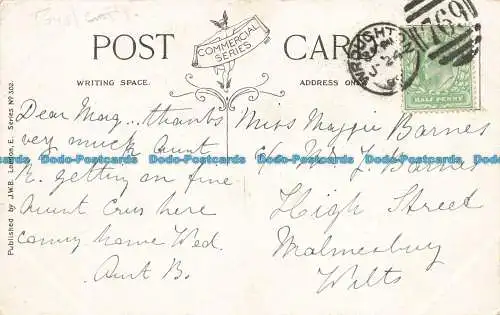 POST CARD
COMMERCIAL SERIES
WRITING SPACE.
ADDRESS ONLY
WROUGHTON
769
HALF PENNY
Published by J.W.B. London, E. Series No. 302.
Dear Mag... thanks
very much. Aunt
K. getting on fine
Aunt here
coming home Wed.
Aunt B.
Miss Maggie Barnes
c/o Mr J. Barnes
High Street
Malmesbury
Wilts
Dodo-Postcards Dodo-Postcards Dodo-Postcards Dodo-Postcards Dodo-Postcards Dodo-Postcards